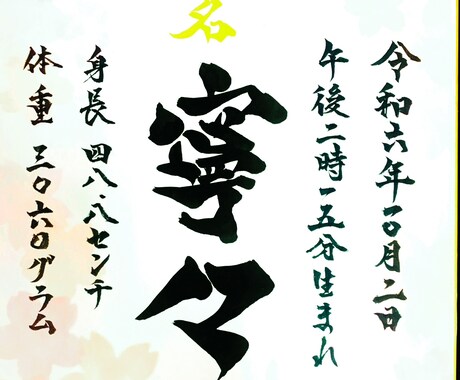 令和六年一〇月二日
午後二時一五分生まれ
名
寧々
身長 四八.八センチ
体重 三〇六〇グラム